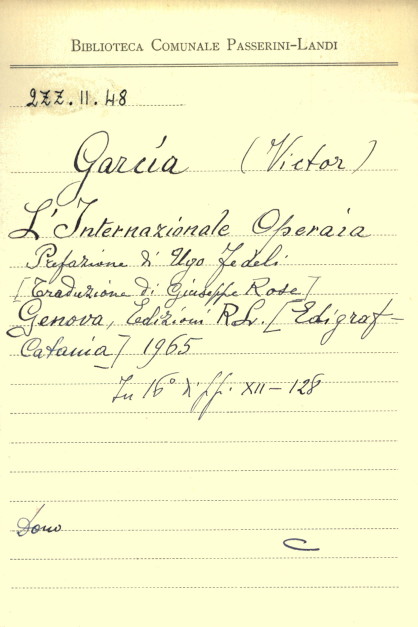 BIBLIOTECA COMUNALE PASSERINI-LANDI
2ZZ.II.48
García (Victor)
L'Internazionale Operaia
Prefazione di Ugo Fedeli
[Traduzione di Giuseppe Rose]
Genova, Edizioni R.L. [Edigraf-
Catania] 1965
In 16° di ff. XII-128
Dono
C